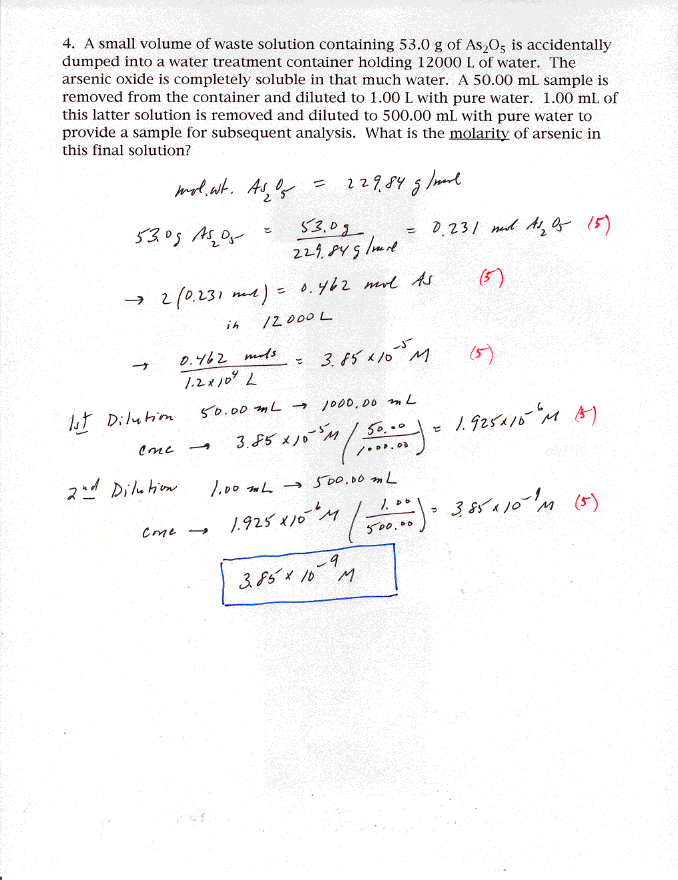 4. A small volume of waste solution containing 53.0 g of As₂O₅ is accidentally
dumped into a water treatment container holding 12000 L of water. The
arsenic oxide is completely soluble in that much water. A 50.00 mL sample is
removed from the container and diluted to 1.00 L with pure water. 1.00 mL of
this latter solution is removed and diluted to 500.00 mL with pure water to
provide a sample for subsequent analysis. What is the molarity of arsenic in
this final solution?
mol. wt. As₂O₅ = 229.84 g/mol
53.0 g As₂O₅ = 53.0 g / 229.84 g/mol = 0.231 mol As₂O₅ (5)
→ 2 (0.231 mol) = 0.462 mol As (5)
in 12000 L
→ 0.462 mols / 1.2 x 10⁴ L = 3.85 x 10⁻⁵ M (5)
1st Dilution 50.00 mL → 1000.00 mL
conc → 3.85 x 10⁻⁵ M (50.00 / 1000.00) = 1.925 x 10⁻⁶ M (5)
2nd Dilution 1.00 mL → 500.00 mL
conc → 1.925 x 10⁻⁶ M (1.00 / 500.00) = 3.85 x 10⁻⁹ M (5)
3.85 x 10⁻⁹ M